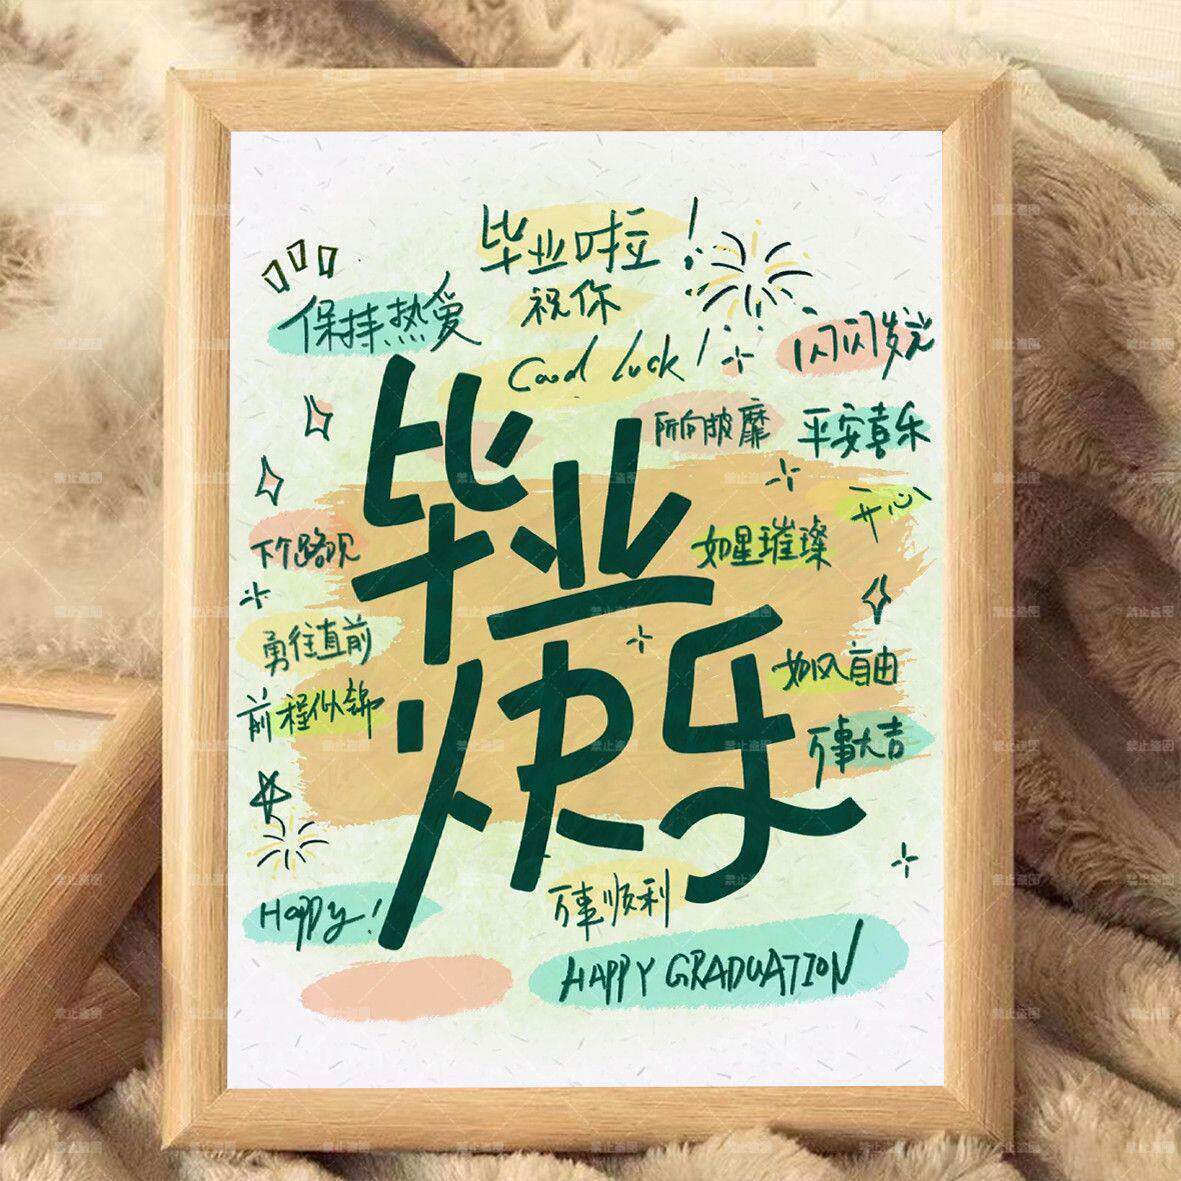 毕业啦!
祝你
保持热爱
闪闪发光
Good luck!
所向披靡
平安喜乐
毕业
开心
如星璀璨
下个路口见
勇往直前
如风自由
前程似锦
快乐
万事大吉
Happy!
万事顺利
HAPPY GRADUATION
禁止盗图